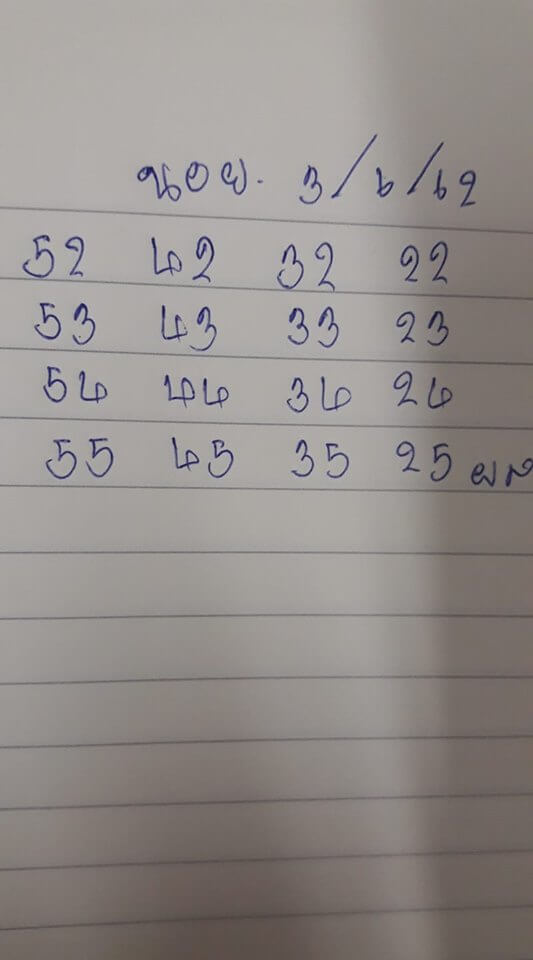 ฮานอย. 3/6/62
52 42 32 22
53 43 33 23
54 44 34 24
55 45 35 25